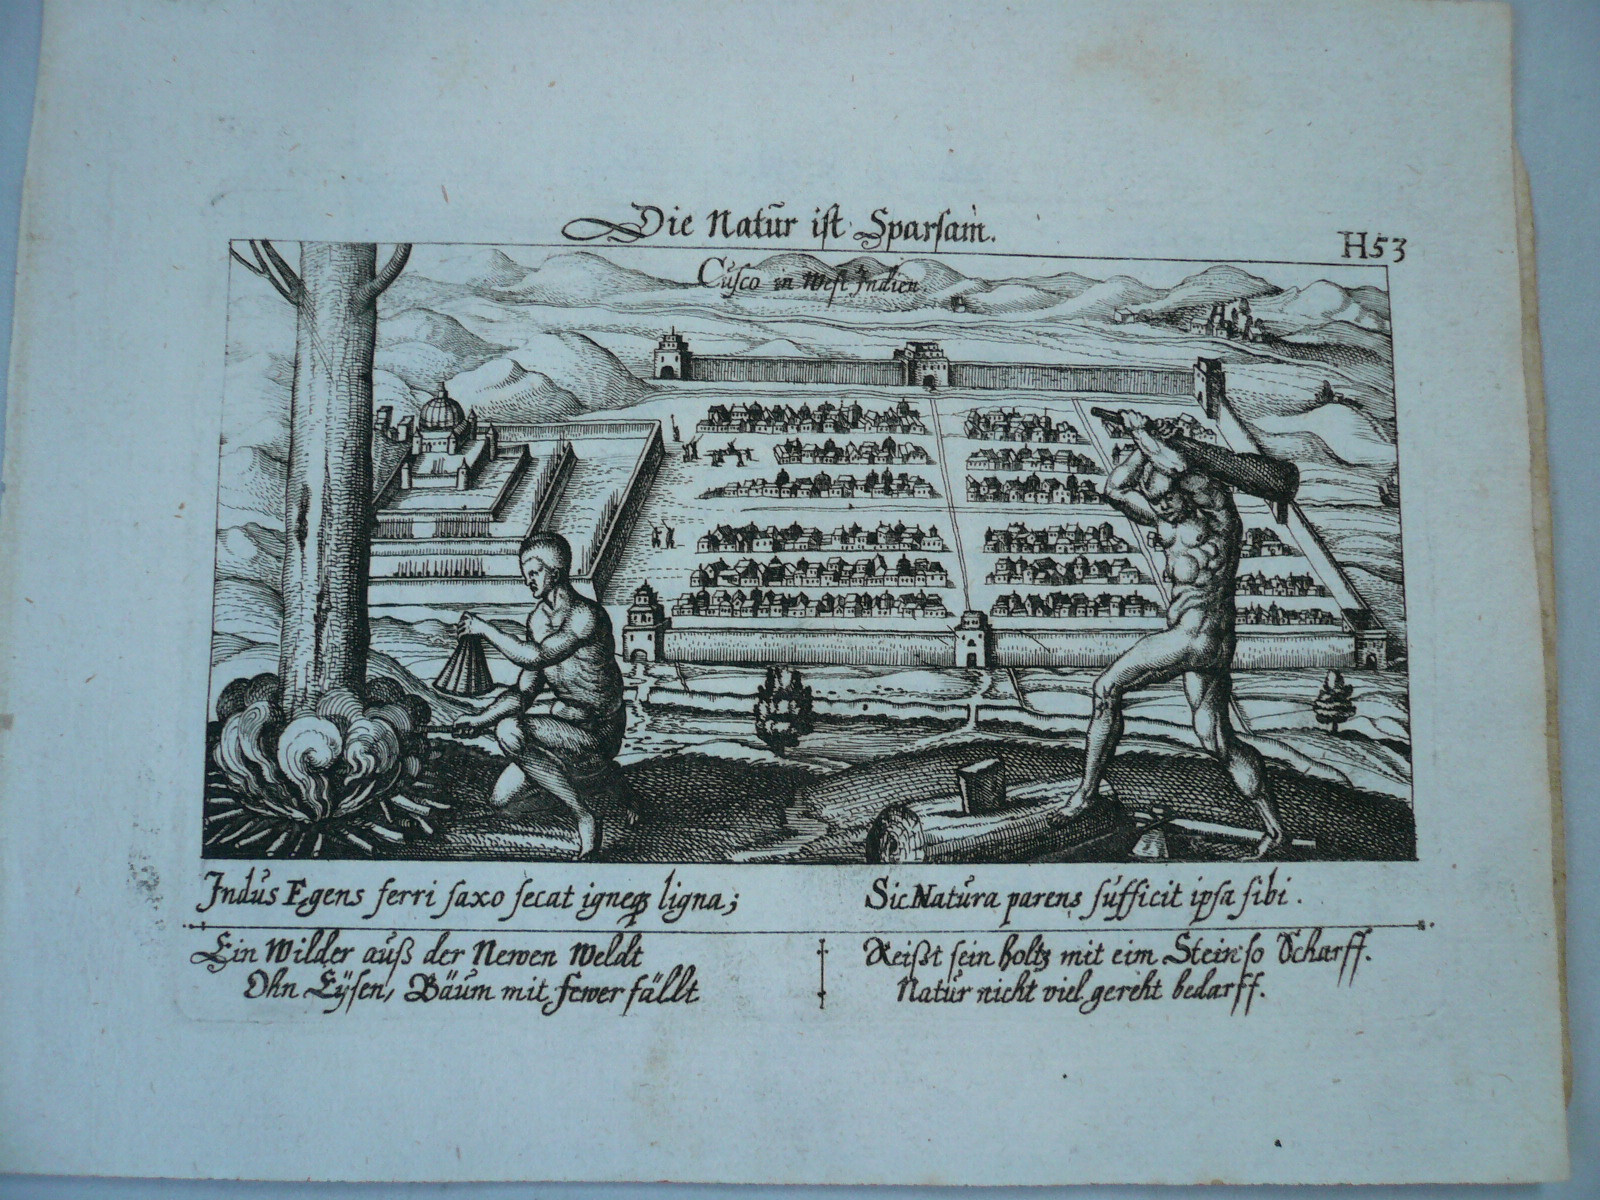 Die Natur ist Sparsam.
H53
Cusco in West Indien.
Indus Egens ferri saxo secat igneqȝ ligna;
Sic Natura parens sufficit ipsa sibi.
Ein Wilder auß der Newen Weldt
Ohn Eÿsen, Bäum mit fewer fällt
Reißt sein holtz mit eim Stein so Scharff.
Natur nicht viel gereht bedarff.